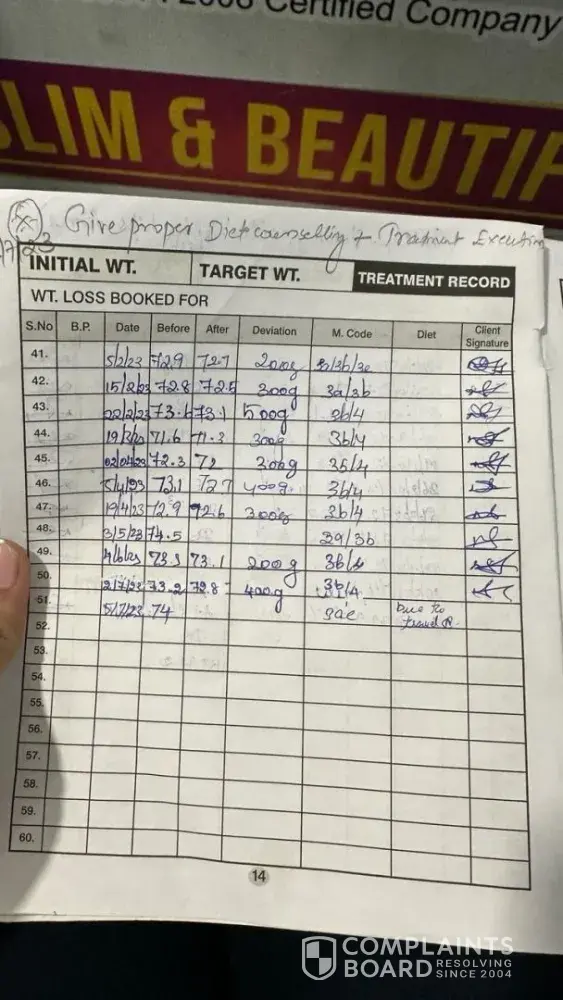 2008 Certified Company
SLIM & BEAUTIF
Give proper Diet counselling + Tratmint Execution
INITIAL WT. TARGET WT. TREATMENT RECORD
WT. LOSS BOOKED FOR
S.No B.P. Date Before After Deviation M. Code Diet Client Signature
41. 5/2/23 72.9 72.7 200g
42. 15/2/23 72.8 72.5 300g 3a/3b
43. 22/2/23 73.6 73.1 500g 3b/4
44. 19/3/23 71.6 71.3 300g 3b/4
45. 02/04/23 72.3 72 300g 3b/4
46. 5/4/23 73.1 72.7 400g 3b/4
47. 19/4/23 72.9 72.6 300g 3b/4
48. 3/5/23 74.5 3a/3b
49. 4/6/23 73.3 73.1 200g 3b/4
50. 2/7/23 73.2 72.8 400g 3b/4
51. 5/7/23 74 Due to
52.
53.
54.
55.
56.
57.
58.
59.
60.
14
COMPLAINTS
BOARD RESOLVING
SINCE 2004